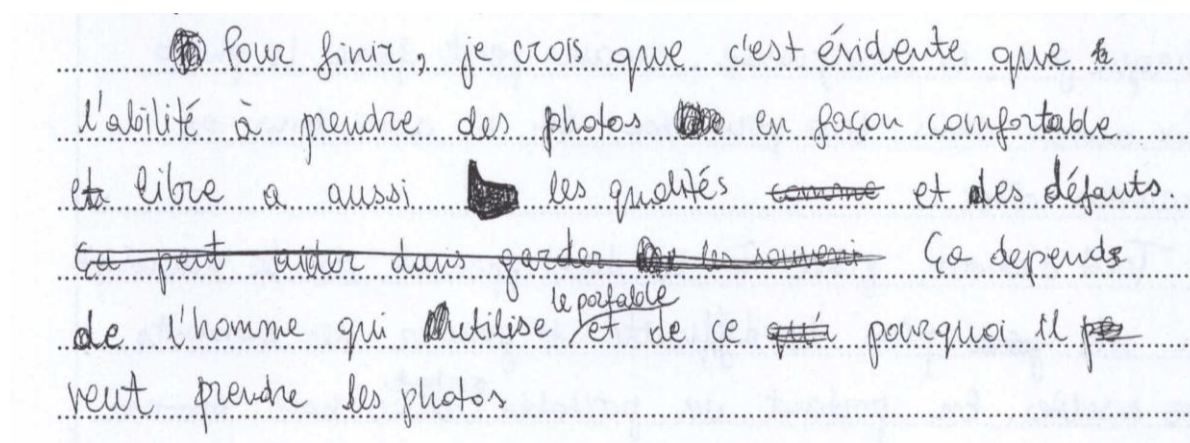 Pour finir, je crois que c'est évidente que
l'abilité à prendre des photos en façon comfortable
et libre a aussi les qualités comme et des défauts.
Ça peut aider dans garder les souvenir Ça depends
de l'homme qui utilise le portable et de ce qui pourquoi il
veut prendre les photos